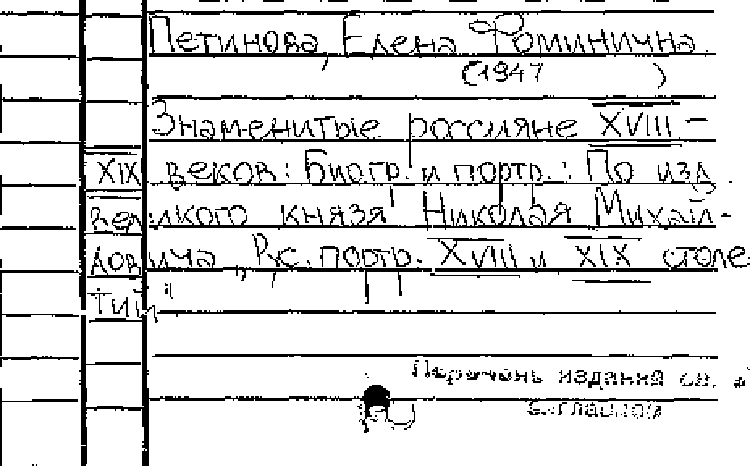 Петинова, Елена Фоминична
(1947 )
Знаменитые россияне XVIII –
XIX веков: Биогр. и портр.: По изд.
великого князя Николая Михай-
ловича „Рус. портр. XVIII и XIX столе
тий"
Перечень изданий см. а
с. главной